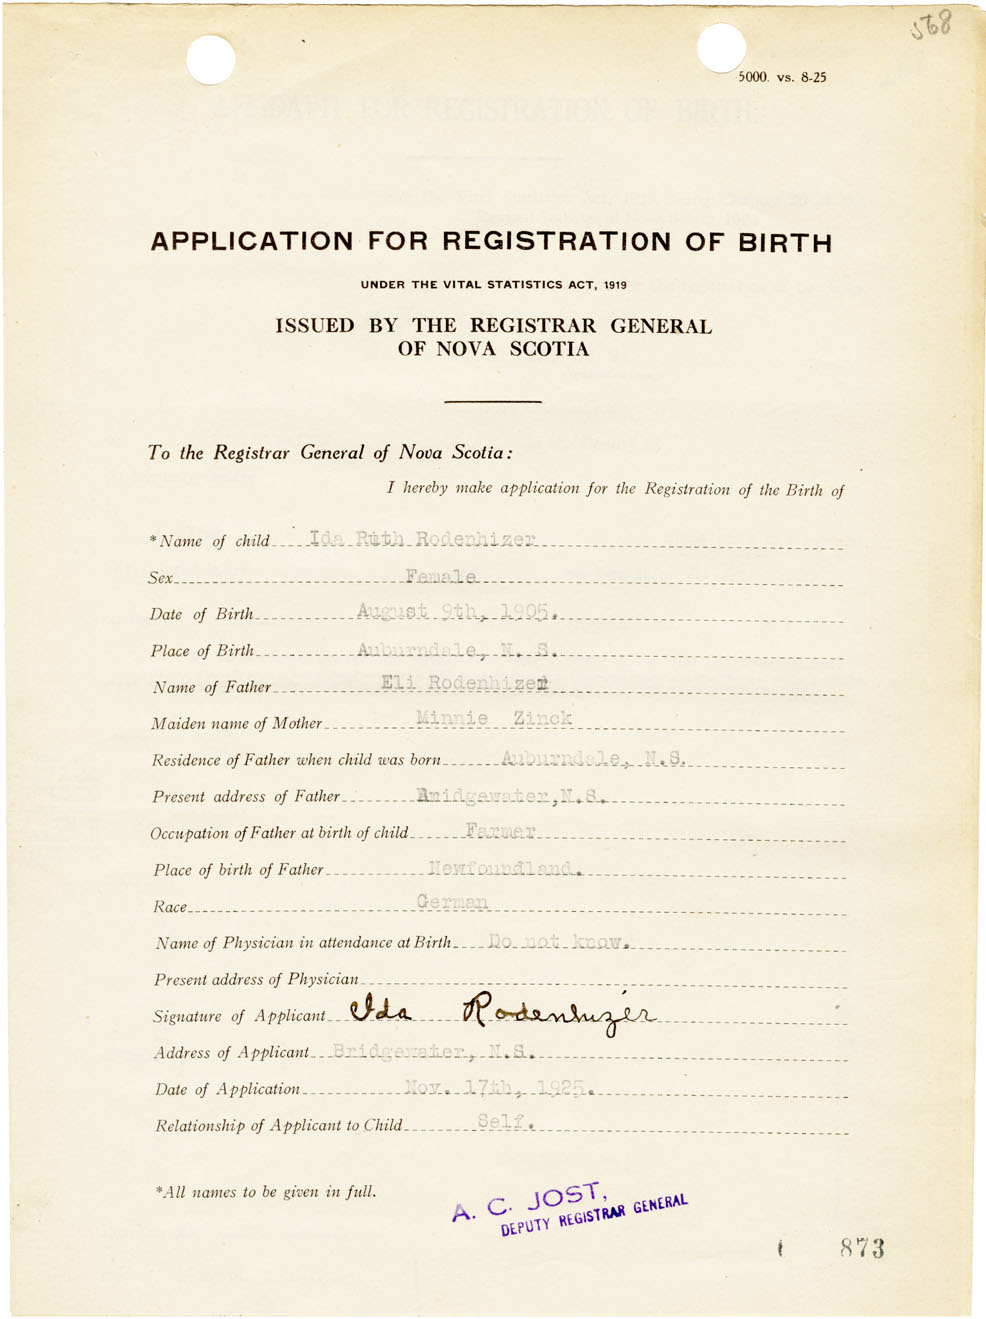 568
5000. vs. 8-25
APPLICATION FOR REGISTRATION OF BIRTH
UNDER THE VITAL STATISTICS ACT, 1919
ISSUED BY THE REGISTRAR GENERAL
OF NOVA SCOTIA
To the Registrar General of Nova Scotia:
I hereby make application for the Registration of the Birth of
*Name of child Ida Ruth Rodenhizer
Sex Female
Date of Birth August 9th, 1905.
Place of Birth Auburndale, N. S.
Name of Father Eli Rodenhizer
Maiden name of Mother Minnie Zinck
Residence of Father when child was born Auburndale, N.S.
Present address of Father Bridgewater, N.S.
Occupation of Father at birth of child Farmer
Place of birth of Father Newfoundland.
Race German
Name of Physician in attendance at Birth Do not know.
Present address of Physician
Signature of Applicant Ida Rodenhizer
Address of Applicant Bridgewater, N.S.
Date of Application Nov. 17th, 1925.
Relationship of Applicant to Child Self.
*All names to be given in full.
A. C. JOST,
DEPUTY REGISTRAR GENERAL
873